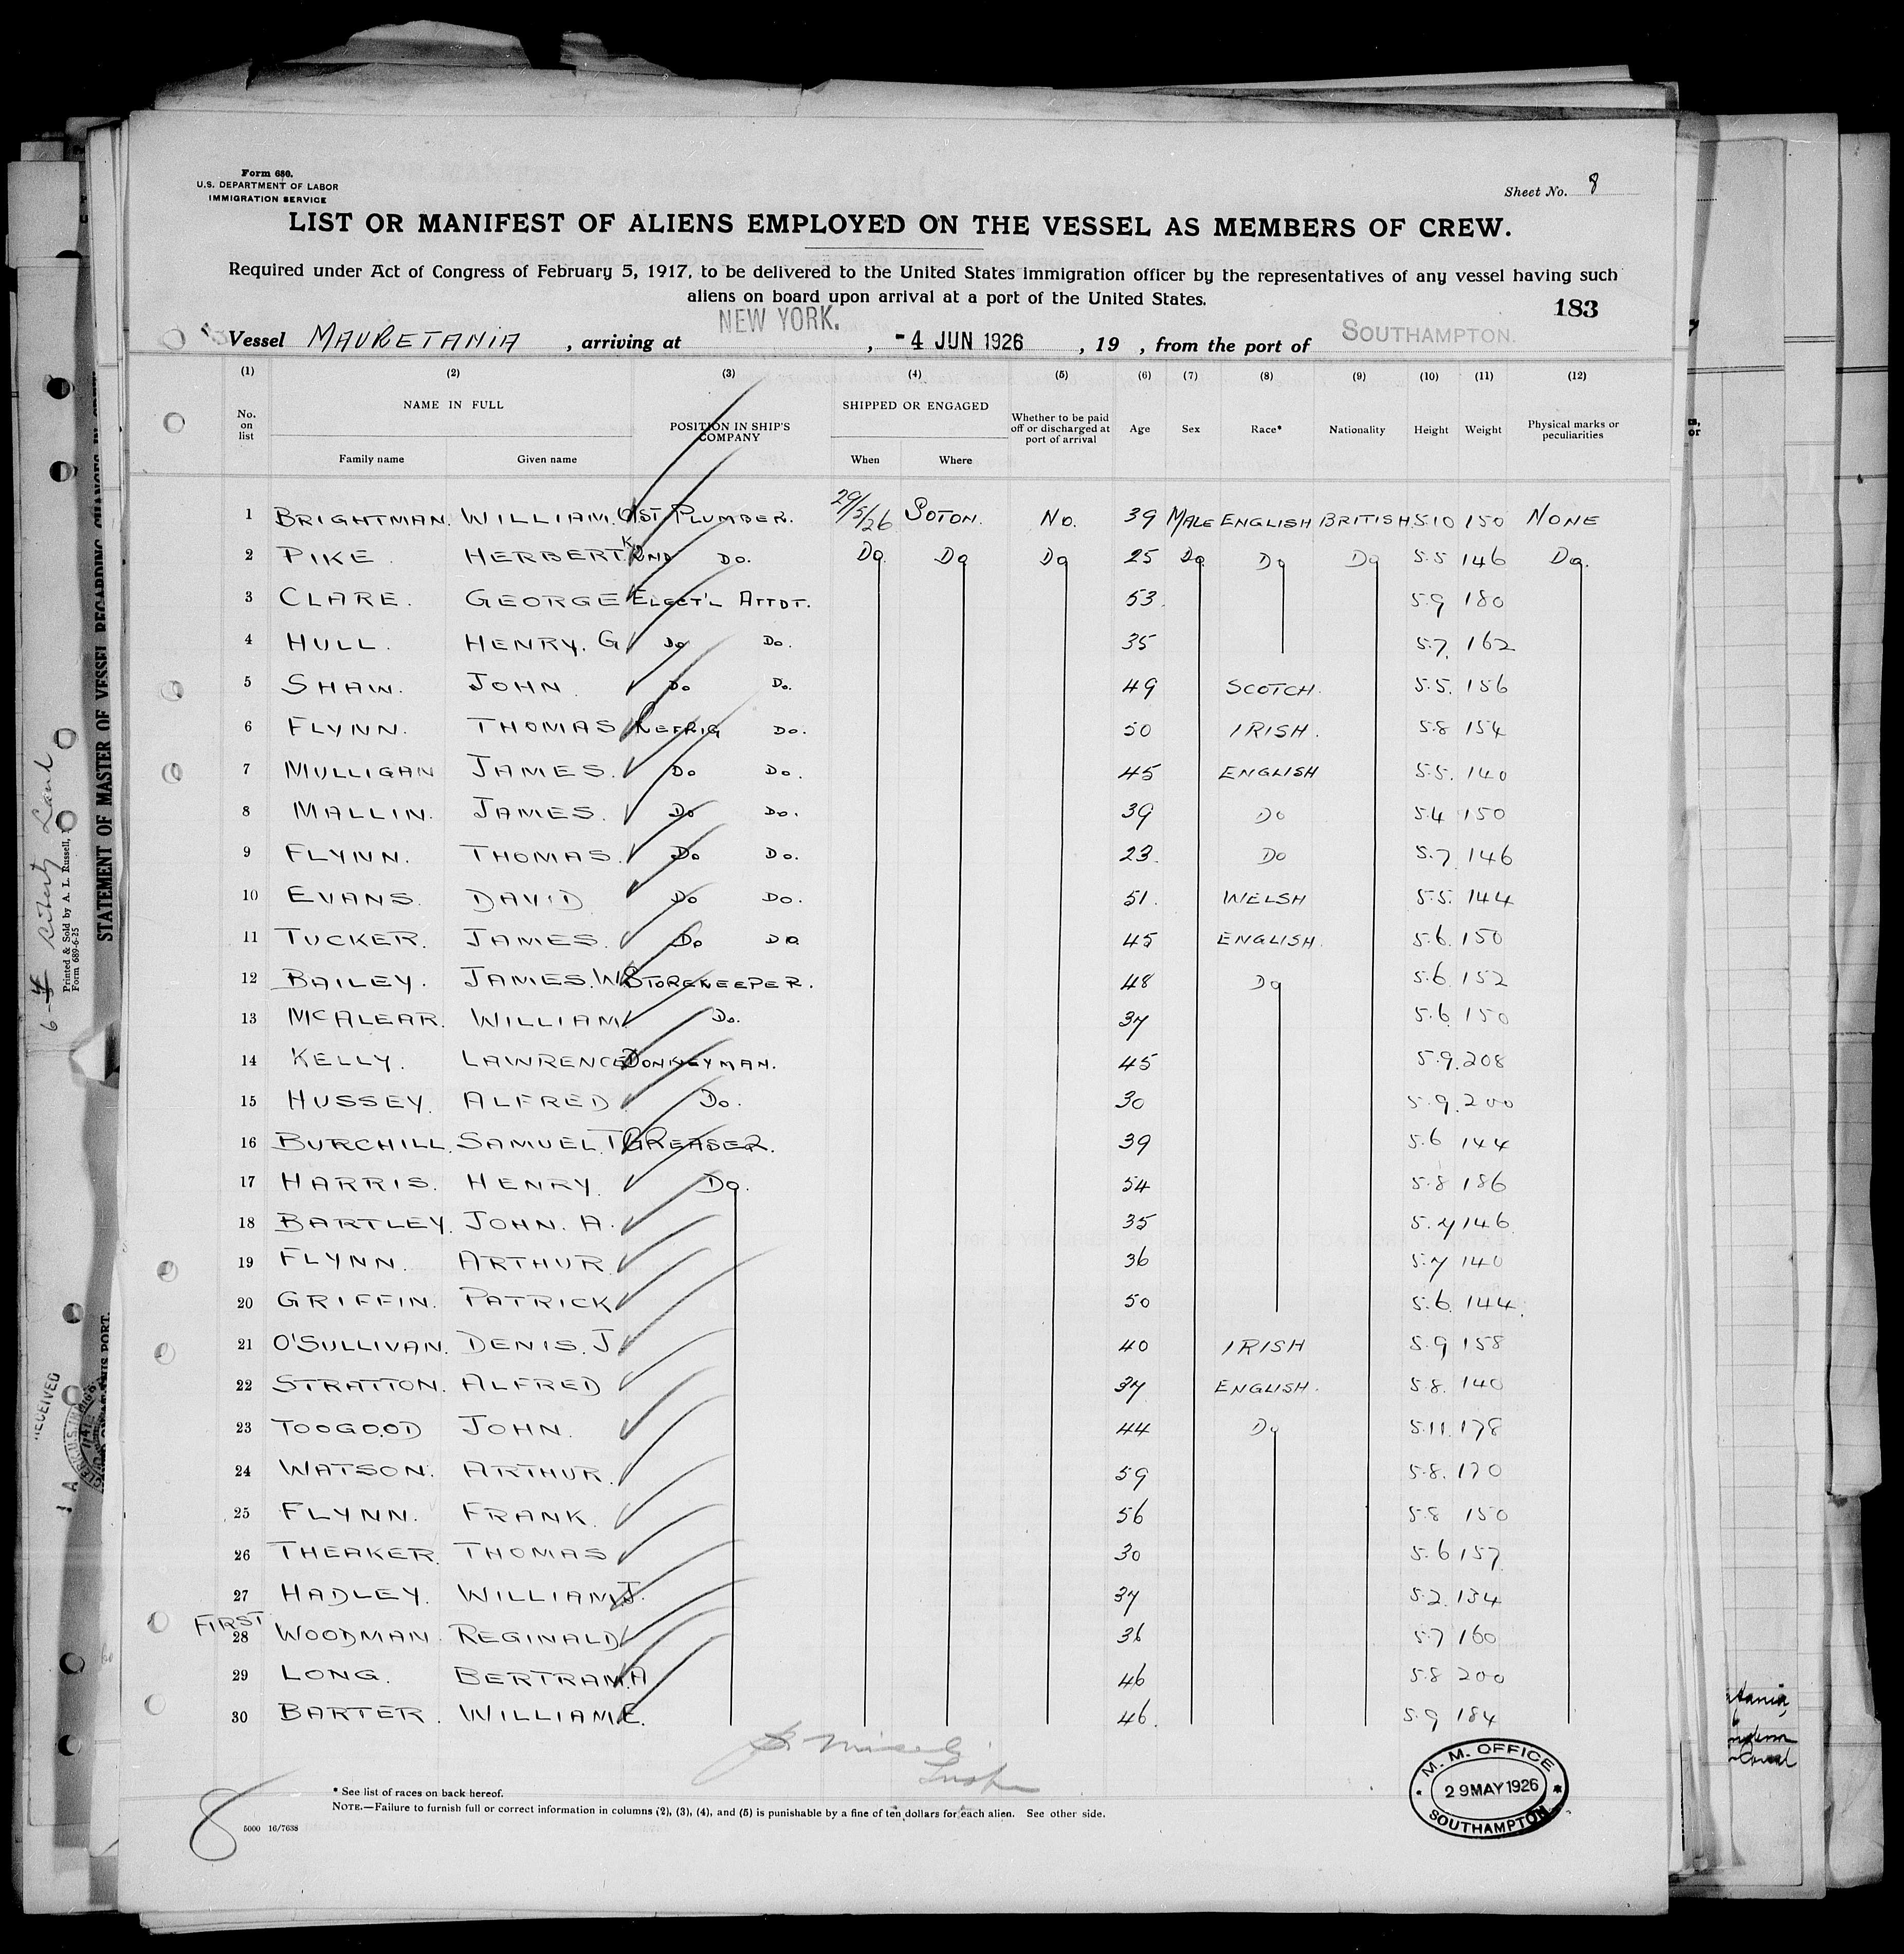 Form 680.
U.S. DEPARTMENT OF LABOR
IMMIGRATION SERVICE
Sheet No. 8
LIST OR MANIFEST OF ALIENS EMPLOYED ON THE VESSEL AS MEMBERS OF CREW.
Required under Act of Congress of February 5, 1917, to be delivered to the United States immigration officer by the representatives of any vessel having such
aliens on board upon arrival at a port of the United States.
183
Vessel MAURETANIA, arriving at NEW YORK., -4 JUN 1926, 19 , from the port of SOUTHAMPTON.
(1) (2) (3) (4) (5) (6) (7) (8) (9) (10) (11) (12)
No. on list NAME IN FULL Family name Given name POSITION IN SHIP'S COMPANY SHIPPED OR ENGAGED When Where Whether to be paid off or discharged at port of arrival Age Sex Race* Nationality Height Weight Physical marks or peculiarities
1 BRIGHTMAN. WILLIAM. 1ST PLUMBER. 29/5/26 SOTON. NO. 39 MALE ENGLISH BRITISH 5.10 150 NONE
2 PIKE. HERBERT. K. 2ND DO. DO DO DO 25 DO DO DO 5.5 146 DO.
3 CLARE. GEORGE ELECT'L ATTDT. 53. 5.9 180
4 HULL. HENRY. G DO DO. 35 5.7. 162
5 SHAW. JOHN. DO DO. 49 SCOTCH. 5.5. 156
6 FLYNN. THOMAS REFRIG DO. 50 IRISH. 5.8 154
7 MULLIGAN JAMES. DO DO. 45 ENGLISH 5.5. 140
8 MALLIN. JAMES. DO DO. 39 DO 5.4 150
9 FLYNN. THOMAS. DO DO. 23. DO 5.7. 146
10 EVANS. DAVID DO DO. 51. WELSH 5.5. 144
11 TUCKER. JAMES. DO DO 45 ENGLISH. 5.6. 150
12 BAILEY. JAMES. W STOREKEEPER. 48 DO 5.6. 152
13 MCALEAR. WILLIAM. DO. 37 5.6. 150
14 KELLY. LAWRENCE DONKEYMAN. 45 5.9. 208
15 HUSSEY. ALFRED DO. 30 5.9. 200
16 BURCHILL. SAMUEL. T GREASER. 39 5.6 144
17 HARRIS. HENRY. DO. 54 5.8 186
18 BARTLEY. JOHN. A. 35 5.7 146
19 FLYNN. ARTHUR. 36 5.7 140
20 GRIFFIN. PATRICK 50 5.6. 144.
21 O'SULLIVAN. DENIS. J 40 IRISH 5.9 158
22 STRATTON. ALFRED 37 ENGLISH. 5.8. 140
23 TOOGOOD JOHN. 44 DO 5.11. 178
24 WATSON. ARTHUR. 59 5.8. 170
25 FLYNN. FRANK. 56 5.8 150
26 THEAKER. THOMAS 30 5.6 157
27 HADLEY. WILLIAM J. 37 5.2. 134
FIRST
28 WOODMAN. REGINALD 36 5.7 160
29 LONG. BERTRAM. A 46 5.8 200
30 BARTER. WILLIAM. E. 46. 5.9 184
* See list of races on back hereof.
NOTE.—Failure to furnish full or correct information in columns (2), (3), (4), and (5) is punishable by a fine of ten dollars for each alien. See other side.
5000 16/7638
8
M. M. OFFICE
29 MAY 1926
SOUTHAMPTON
STATEMENT OF MASTER OF VESSEL REGARDING CHANGES IN CREW
Printed & Sold by A. L. Russell,
Form 689-6-25
RECEIVED